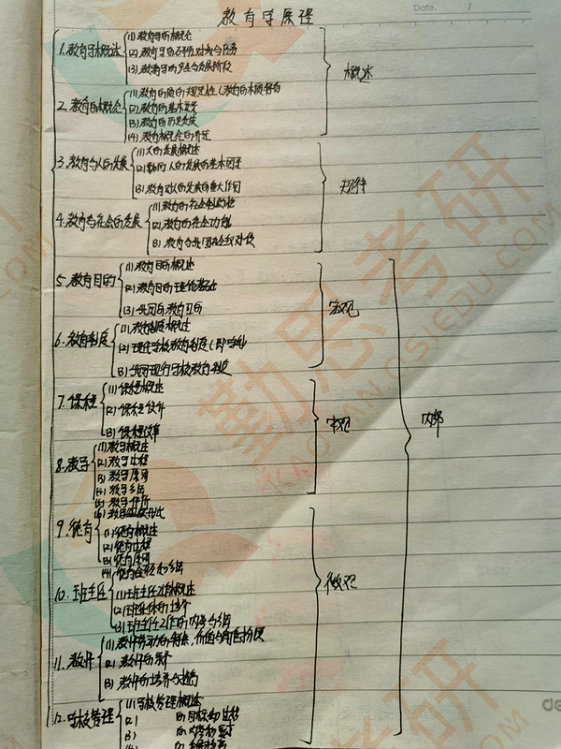 教育学原理
Date.
1.教育学概述
(1)教育学的概念
(2)教育学的研究对象与任务
(3)教育学的产生与发展阶段
概述
2.教育的概念
(1)教育的质的规定性(教育的本质
(2)教育的基本要素
(3)教育的历史发展
(4)教育概念的界定
3.教育与人的发展
(1)人的发展概述
(2)影响人的发展的基本因素
(3)教育对人的发展的重大作用
规律
4.教育与社会的发展
(1)教育的社会制约性
(2)教育的社会功能
(3)教育与我国社会
5.教育目的
(1)教育目的概述
(2)教育目的理论
(3)我国的教育目的
宏观
6.教育制度
(1)教育制度概述
(2)现代学校教育制度
(3)我国现行学校教育制度
内部
7.课程
(1)课程概述
(2)课程设计
(3)课程改革
8.教学
(1)教学概述
(2)教学过程
(3)教学原则
(4)教学方法
9.德育
(1)德育概述
(2)德育过程
(3)德育原则
(4)德育途径和方法
微观
10.班主任
(1)班主任工作概述
(2)班集体的培养
(3)班主任工作的内容与方法
11.教师
(1)教师劳动的特点,价值与角色扮演
(2)教师的素养
(3)教师的培养与提高
12.学校管理
(1)学校管理概述
(2)
(3)
(4)
勤思考研
KAOYAN.QSIEDU.COM